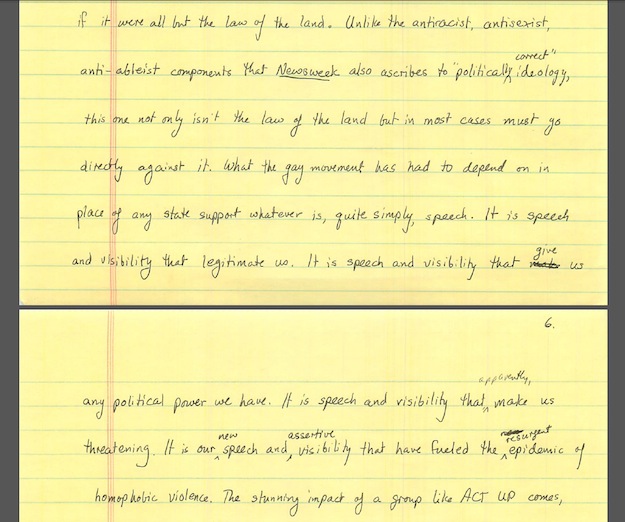 if it were all but the law of the land. Unlike the antiracist, antisexist,
correct"
anti-ableist components that Newsweek also ascribes to "politically ideology,
this one not only isn't the law of the land but in most cases must go
directly against it. What the gay movement has had to depend on in
place of any state support whatever is, quite simply, speech. It is speech
and visibility that legitimate us. It is speech and visibility that give us
6.
any political power we have. It is speech and visibility that apparently, make us
threatening. It is our new speech and assertive visibility that have fueled the resurgent epidemic of
homophobic violence. The stunning impact of a group like ACT UP comes,